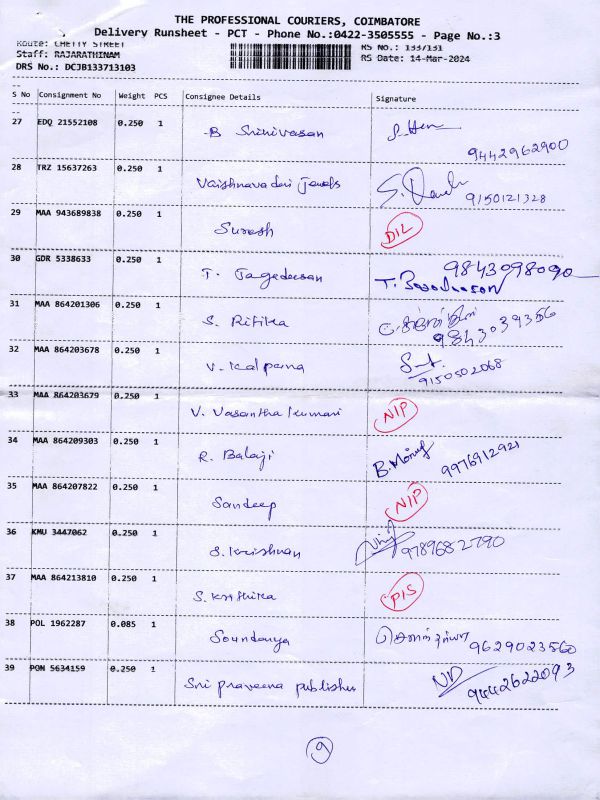 THE PROFESSIONAL COURIERS, COIMBATORE
Delivery Runsheet - PCT - Phone No.:0422-3505555 - Page No.:3
Route: CHETTY STREET
RS No.: 133/131
Staff: RAJARATHINAM
RS Date: 14-Mar-2024
DRS No.: DCJB133713103
S No Consignment No Weight PCS Consignee Details Signature
27 EDQ 21552108 0.250 1 B Srinivasan
9442962900
28 TRZ 15637263 0.250 1 Vaishnava devi Jewels 9150121328
29 MAA 943689838 0.250 1 Suresh DIL
30 GDR 5338633 0.250 1 T. Jagadeesan 9843098090
31 MAA 864201306 0.250 1 S. Ritika
9843039356
32 MAA 864203678 0.250 1 V. Kalpana
9150502068
33 MAA 864203679 0.250 1 V. Vasantha Kumari NIP
34 MAA 864209303 0.250 1 R. Balaji 9976912921
35 MAA 864207822 0.250 1 Sandeep NIP
36 KMU 3447062 0.250 1 S. Krishnan 9789682790
37 MAA 864213810 0.250 1 S. Krithika PIS
38 POL 1962287 0.085 1 Soundarya சௌந்தர்யா
9629023560
39 PON 5634159 0.250 1 Sri praveena publisher 9442622093
9